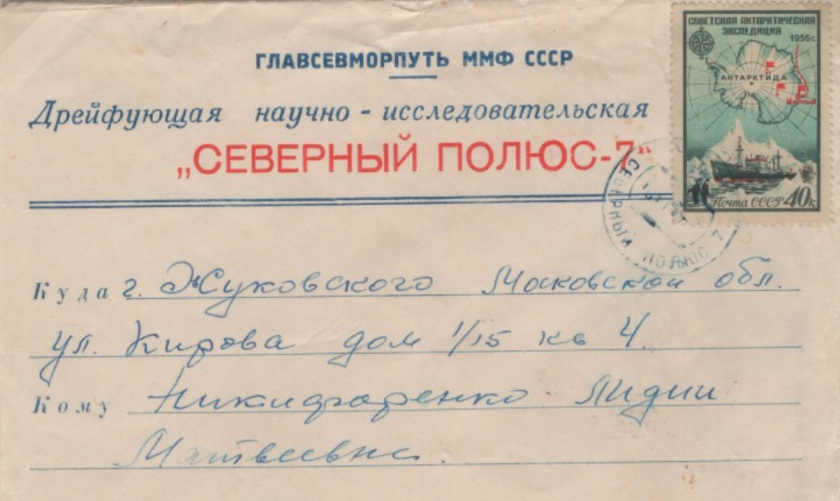 ГЛАВСЕВМОРПУТЬ ММФ СССР
Дрейфующая научно - исследовательская
„СЕВЕРНЫЙ ПОЛЮС-7"
СОВЕТСКАЯ АНТАРКТИЧЕСКАЯ
ЭКСПЕДИЦИЯ
1956 г.
АНТАРКТИДА
Мирный
Почта СССР 40к
СЕВЕРНЫЙ ПОЛЮС 7
Куда г. Жуковского Московской обл.
ул. Кирова дом 1/15 кв 4.
Кому Никифаренко Лидии
Матвеевне.